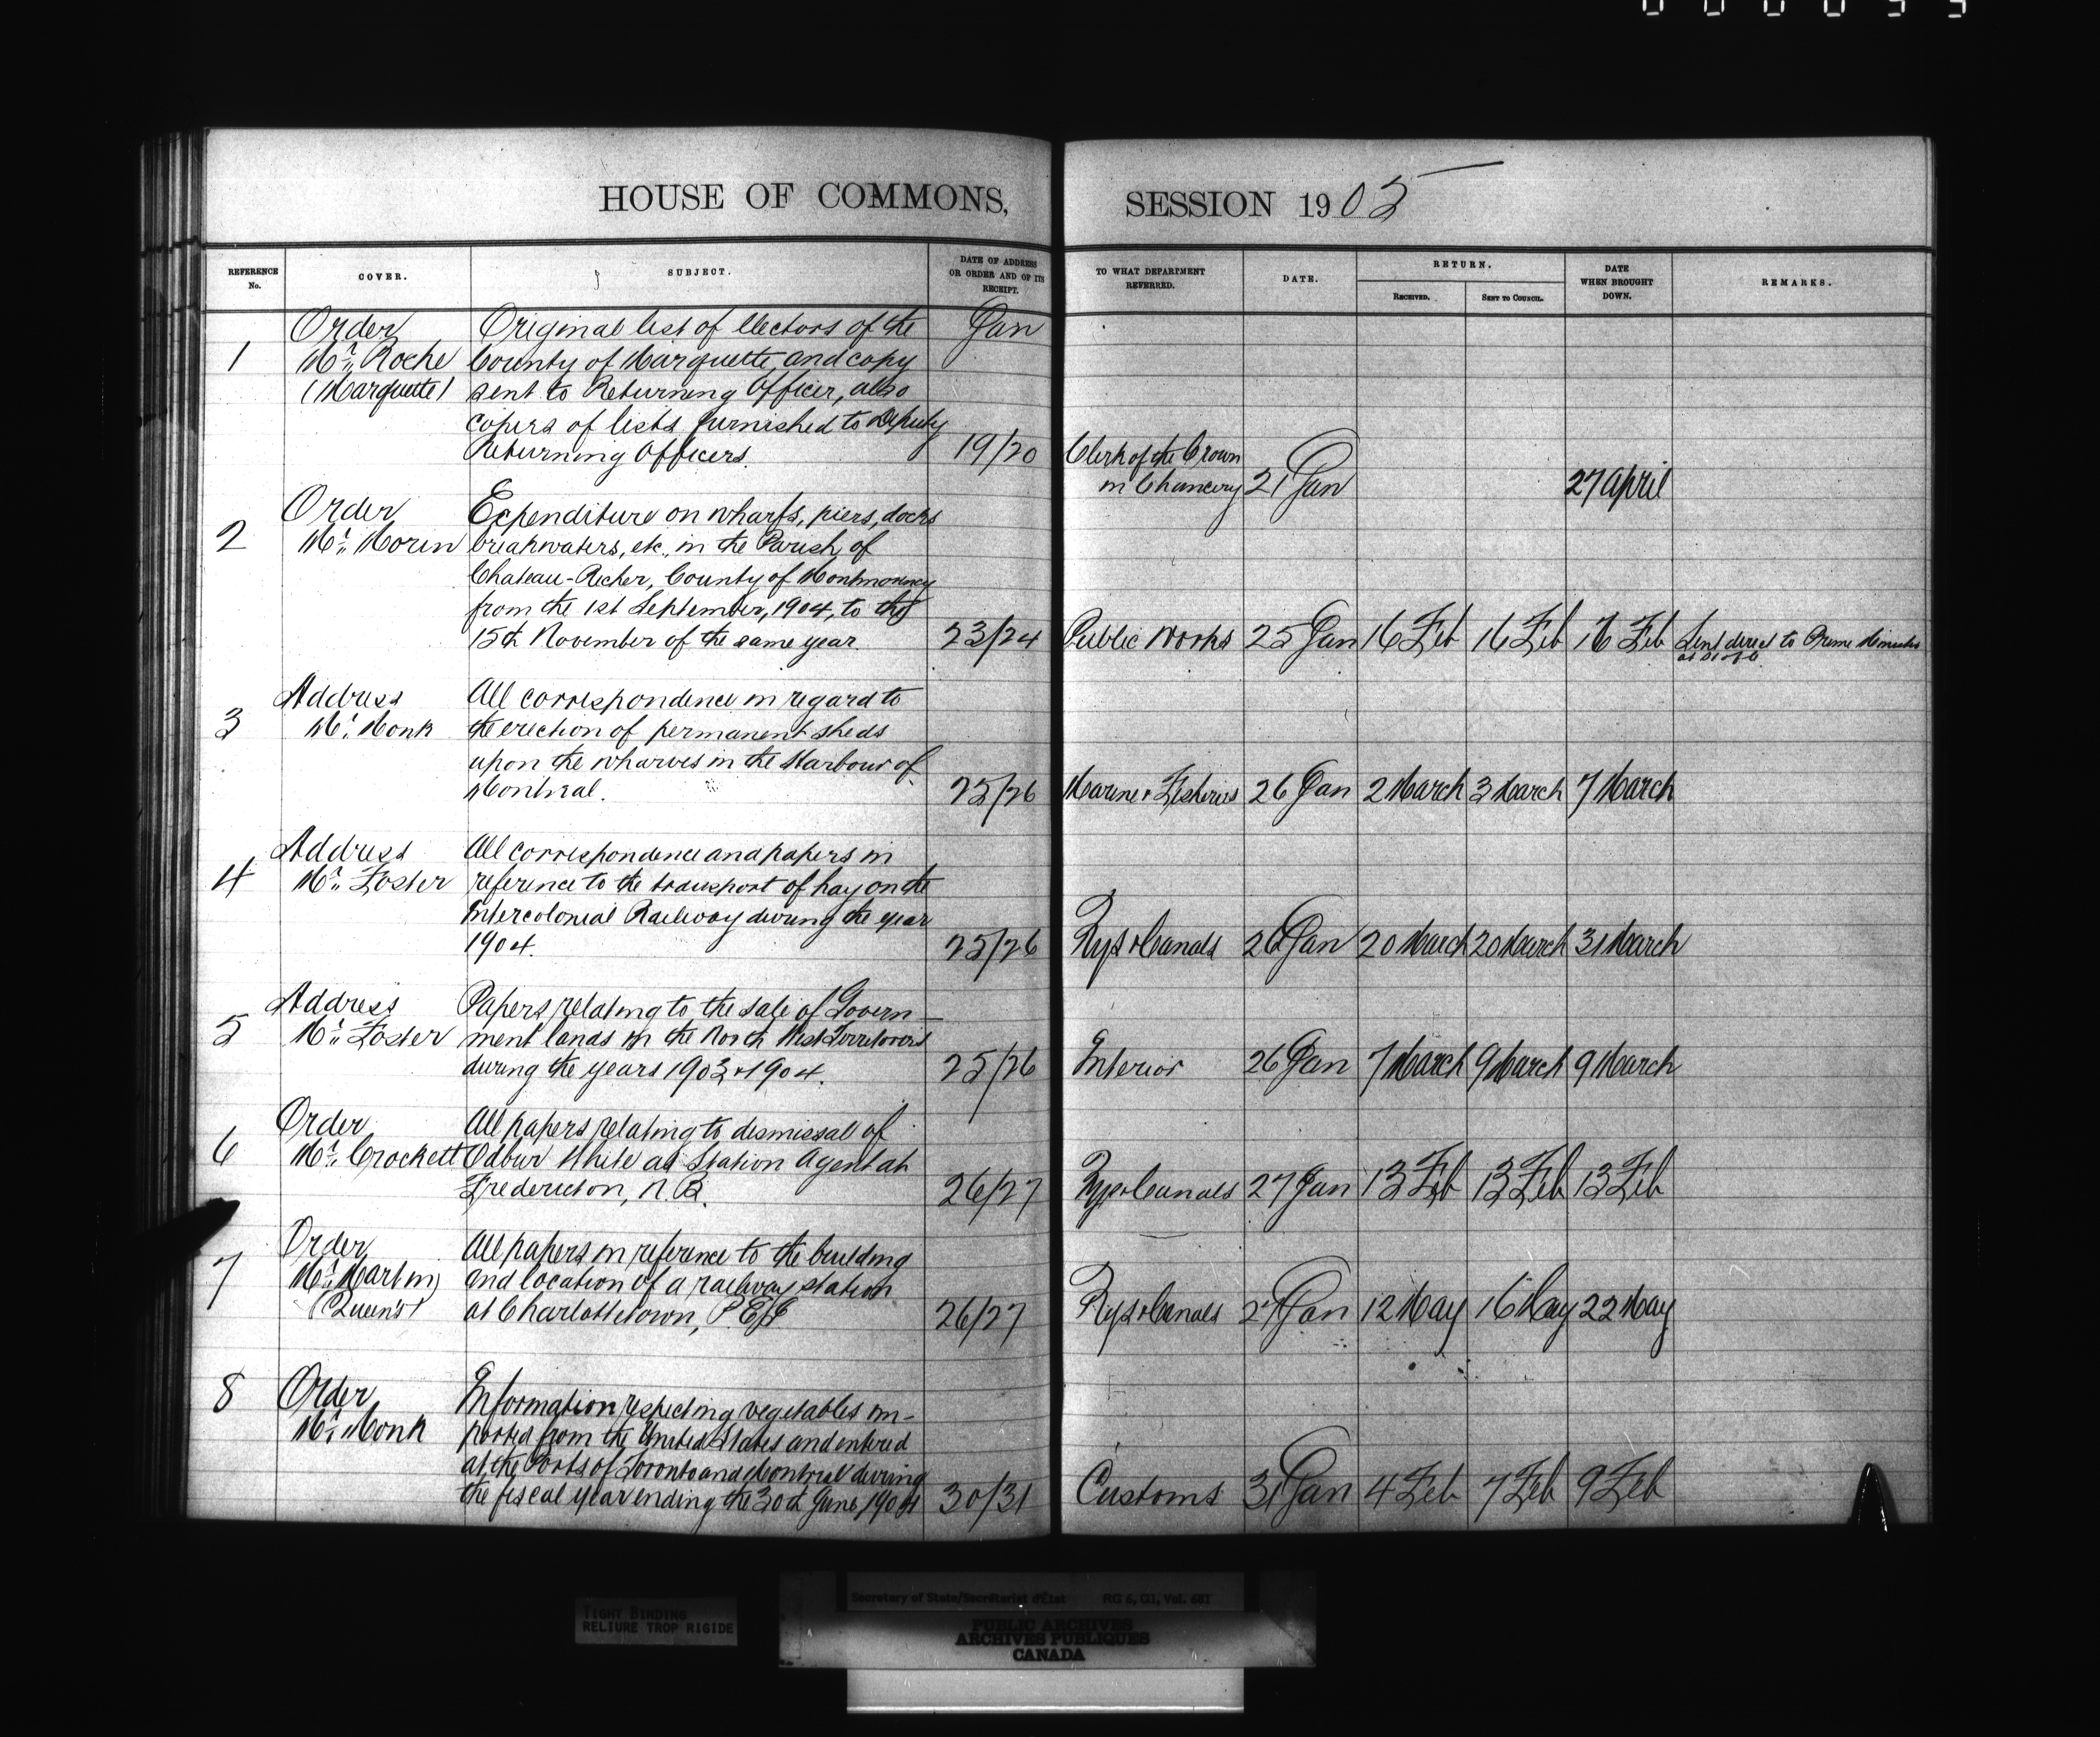 HOUSE OF COMMONS,
SESSION 1905
REFERENCE No.
COVER.
SUBJECT.
DATE OF ADDRESS OR ORDER AND OF ITS RECEIPT.
TO WHAT DEPARTMENT REFERRED.
DATE.
RETURN.
RECEIVED.
SENT TO COUNCIL.
DATE WHEN BROUGHT DOWN.
REMARKS.
Order Original list of Electors of the Jan
1 Mr. Roche County of Marquette, and copy
(Marquette) sent to Returning Officer, also
copies of lists furnished to Deputy
Returning Officers. 19/20 Clerk of the Crown
in Chancery 21 Jan 27 April
Order Expenditure on wharfs, piers, docks
2 Mr. Morin breakwaters, etc., in the Parish of
Chateau-Richer, County of Montmorency
from the 1st September, 1904, to the
15th November of the same year. 23/24 Public Works 25 Jan 16 Feb 16 Feb 16 Feb Sent direct to Prime Minister
Address All correspondence in regard to
3 Mr. Monk the erection of permanent sheds
upon the wharves in the Harbour of
Montreal. 25/26 Marine & Fisheries 26 Jan 2 March 3 March 7 March
Address All correspondence and papers in
4 Mr. Foster reference to the transport of hay on the
Intercolonial Railway during the year
1904. 25/26 Rys & Canals 26 Jan 20 March 20 March 31 March
Address Papers relating to the sale of Govern-
5 Mr. Foster ment lands in the North West Territories
during the years 1903 & 1904. 25/26 Interior 26 Jan 7 March 9 March 9 March
Order All papers relating to dismissal of
6 Mr. Crockett Odbur White as Station Agent at
Fredericton, N.B. 26/27 Rys & Canals 27 Jan 13 Feb 13 Feb 13 Feb
Order All papers in reference to the building
7 Mr. Martin and location of a railway station
(Queen's) at Charlottetown, P.E.I. 26/27 Rys & Canals 27 Jan 12 May 16 May 22 May
8 Order Information respecting vegetables im-
Mr. Monk ported from the United States and entered
at the Ports of Toronto and Montreal during
the fiscal year ending the 30th June, 1904 30/31 Customs 31 Jan 4 Feb 7 Feb 9 Feb
TIGHT BINDING
RELIURE TROP RIGIDE
Secretary of State/Secrétariat d'État RG 6, D1, Vol. 681
PUBLIC ARCHIVES
ARCHIVES PUBLIQUES
CANADA